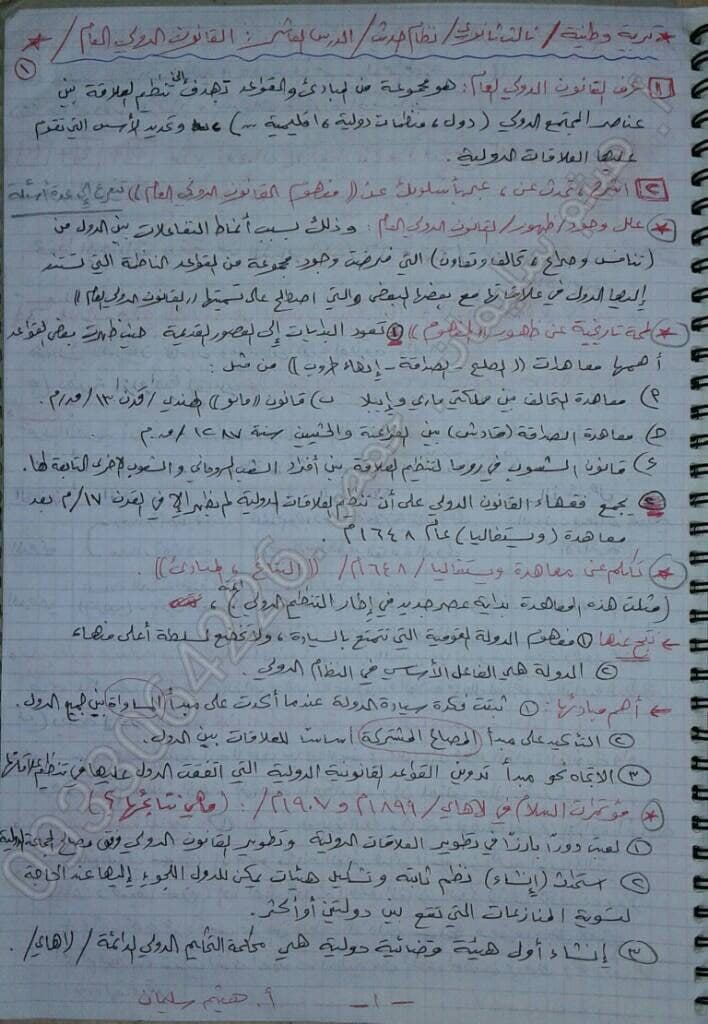 ★ تربية وطنية / ثالث ثانوي / نظام حديث / الدرس العاشر : القانون الدولي العام / ★
١
١ عرف القانون الدولي العام : هو مجموعة من المبادئ والقواعد تهدف إلى تنظيم العلاقة بين
عناصر المجتمع الدولي ( دول ، منظمات دولية ، اقليمية ... ) وتحديد الأسس التي تقوم
عليها العلاقات الدولية .
٢ اشرح ، تحدث عن ، عبر بأسلوبك عن (( مفهوم القانون الدولي العام )) تتفرع إلى عدة أسئلة
★ علل وجود / ظهور / القانون الدولي العام : وذلك بسبب أنماط التفاعلات بين الدول من
( تنافس وصراع ، تحالف وتعاون ) التي فرضت وجود مجموعة من القواعد الناظمة التي تستند
إليها الدول في علاقاتها مع بعضها البعض والتي اصطلح على تسميتها (( القانون الدولي العام ))
★ لمحة تاريخية عن ظهور (( المفهوم )) ١ تعود البدايات إلى العصور القديمة حيث ظهرت بعض القواعد
أهمها معاهدات (( الصلح - الصداقة - إنهاء الحروب )) من مثل :
أ) معاهدة التحالف بين مملكتي ماري وإيبلا ب) قانون (( مانو )) الهندي / قرن ١٣ / ق.م .
ج) معاهدة الصداقة ( قادش ) بين الفراعنة والحثيين سنة ١٢٨٧ / ق.م
د) قانون الشعوب في روما لتنظيم العلاقة بين أفراد الشعب الروماني والشعوب الأخرى التابعة لها .
٢ يجمع فقهاء القانون الدولي على أن تنظيم العلاقات الدولية لم يظهر إلا في القرن ١٧ / م بعد
معاهدة ( وستفاليا ) عام ١٦٤٨ م .
★ تكلم عن معاهدة وستفاليا / ١٦٤٨ م / (( النتائج ، المبادئ ))
( مثلت هذه المعاهدة بداية عصر جديد في إطار التنظيم الدولي ) ،
← نتج عنها ١ مفهوم الدولة القومية التي تتمتع بالسيادة ، ولا تخضع لسلطة أعلى منها
٢ الدولة هي الفاعل الأساسي في النظام الدولي .
← أهم مبادئها : ١ ثبتت فكرة سيادة الدولة عندما أكدت على مبدأ المساواة بين جميع الدول .
٢ التأكيد على مبدأ المصالح المشتركة أساساً للعلاقات بين الدول .
٣ الاتجاه نحو مبدأ تدوين القواعد القانونية الدولية التي اتفقت الدول عليها في تنظيم علاقاتها
★ مؤتمرات السلام في لاهاي / ١٨٩٩ م و ١٩٠٧ م / : ( ما هي نتائجها ؟ )
١ لعبت دوراً بارزاً في تطوير العلاقات الدولية وتطوير القانون الدولي وفق مصالح الجماعة الدولية
٢ استحداث ( إنشاء ) نظم ثابتة وتشكيل هيئات يمكن للدول اللجوء إليها عند الحاجة
لتسوية المنازعات التي تقع بين دولتين أو أكثر .
٣ إنشاء أول هيئة قضائية دولية هي محكمة التحكيم الدولي الدائمة / لاهاي / .
- ١ -
أ . هيثم سليمان